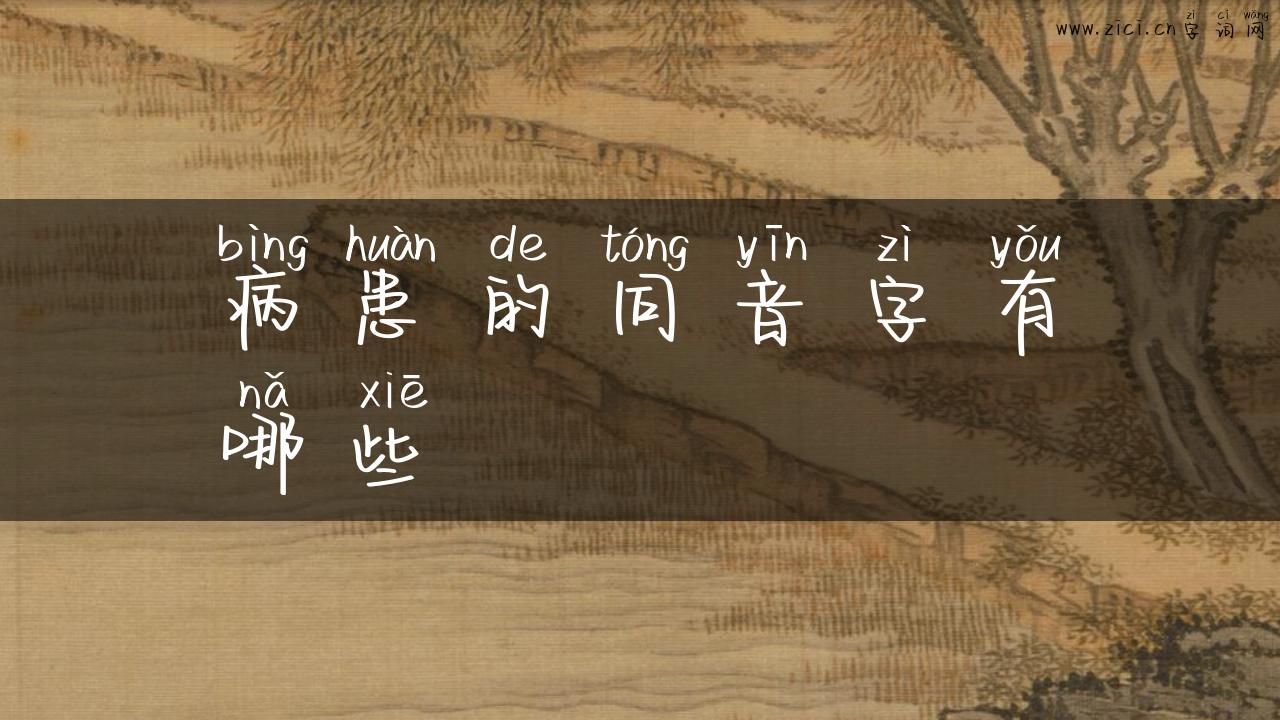 zì cí wǎng
www.zici.cn字词网
bìng huàn de tóng yīn zì yǒu
病患的同音字有
nǎ xiē
哪些